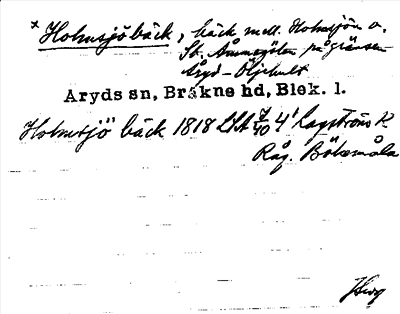 x Holmsjöbäck, bäck mell. Holmsjön o.
St. Åmmegölen på gränsen
Åryd-Öljehult
Aryds sn, Bräkne hd, Blek. l.
Holmsjö bäck 1818 LSA 7/40 4' Lagströms K
Råg. Bökemåla